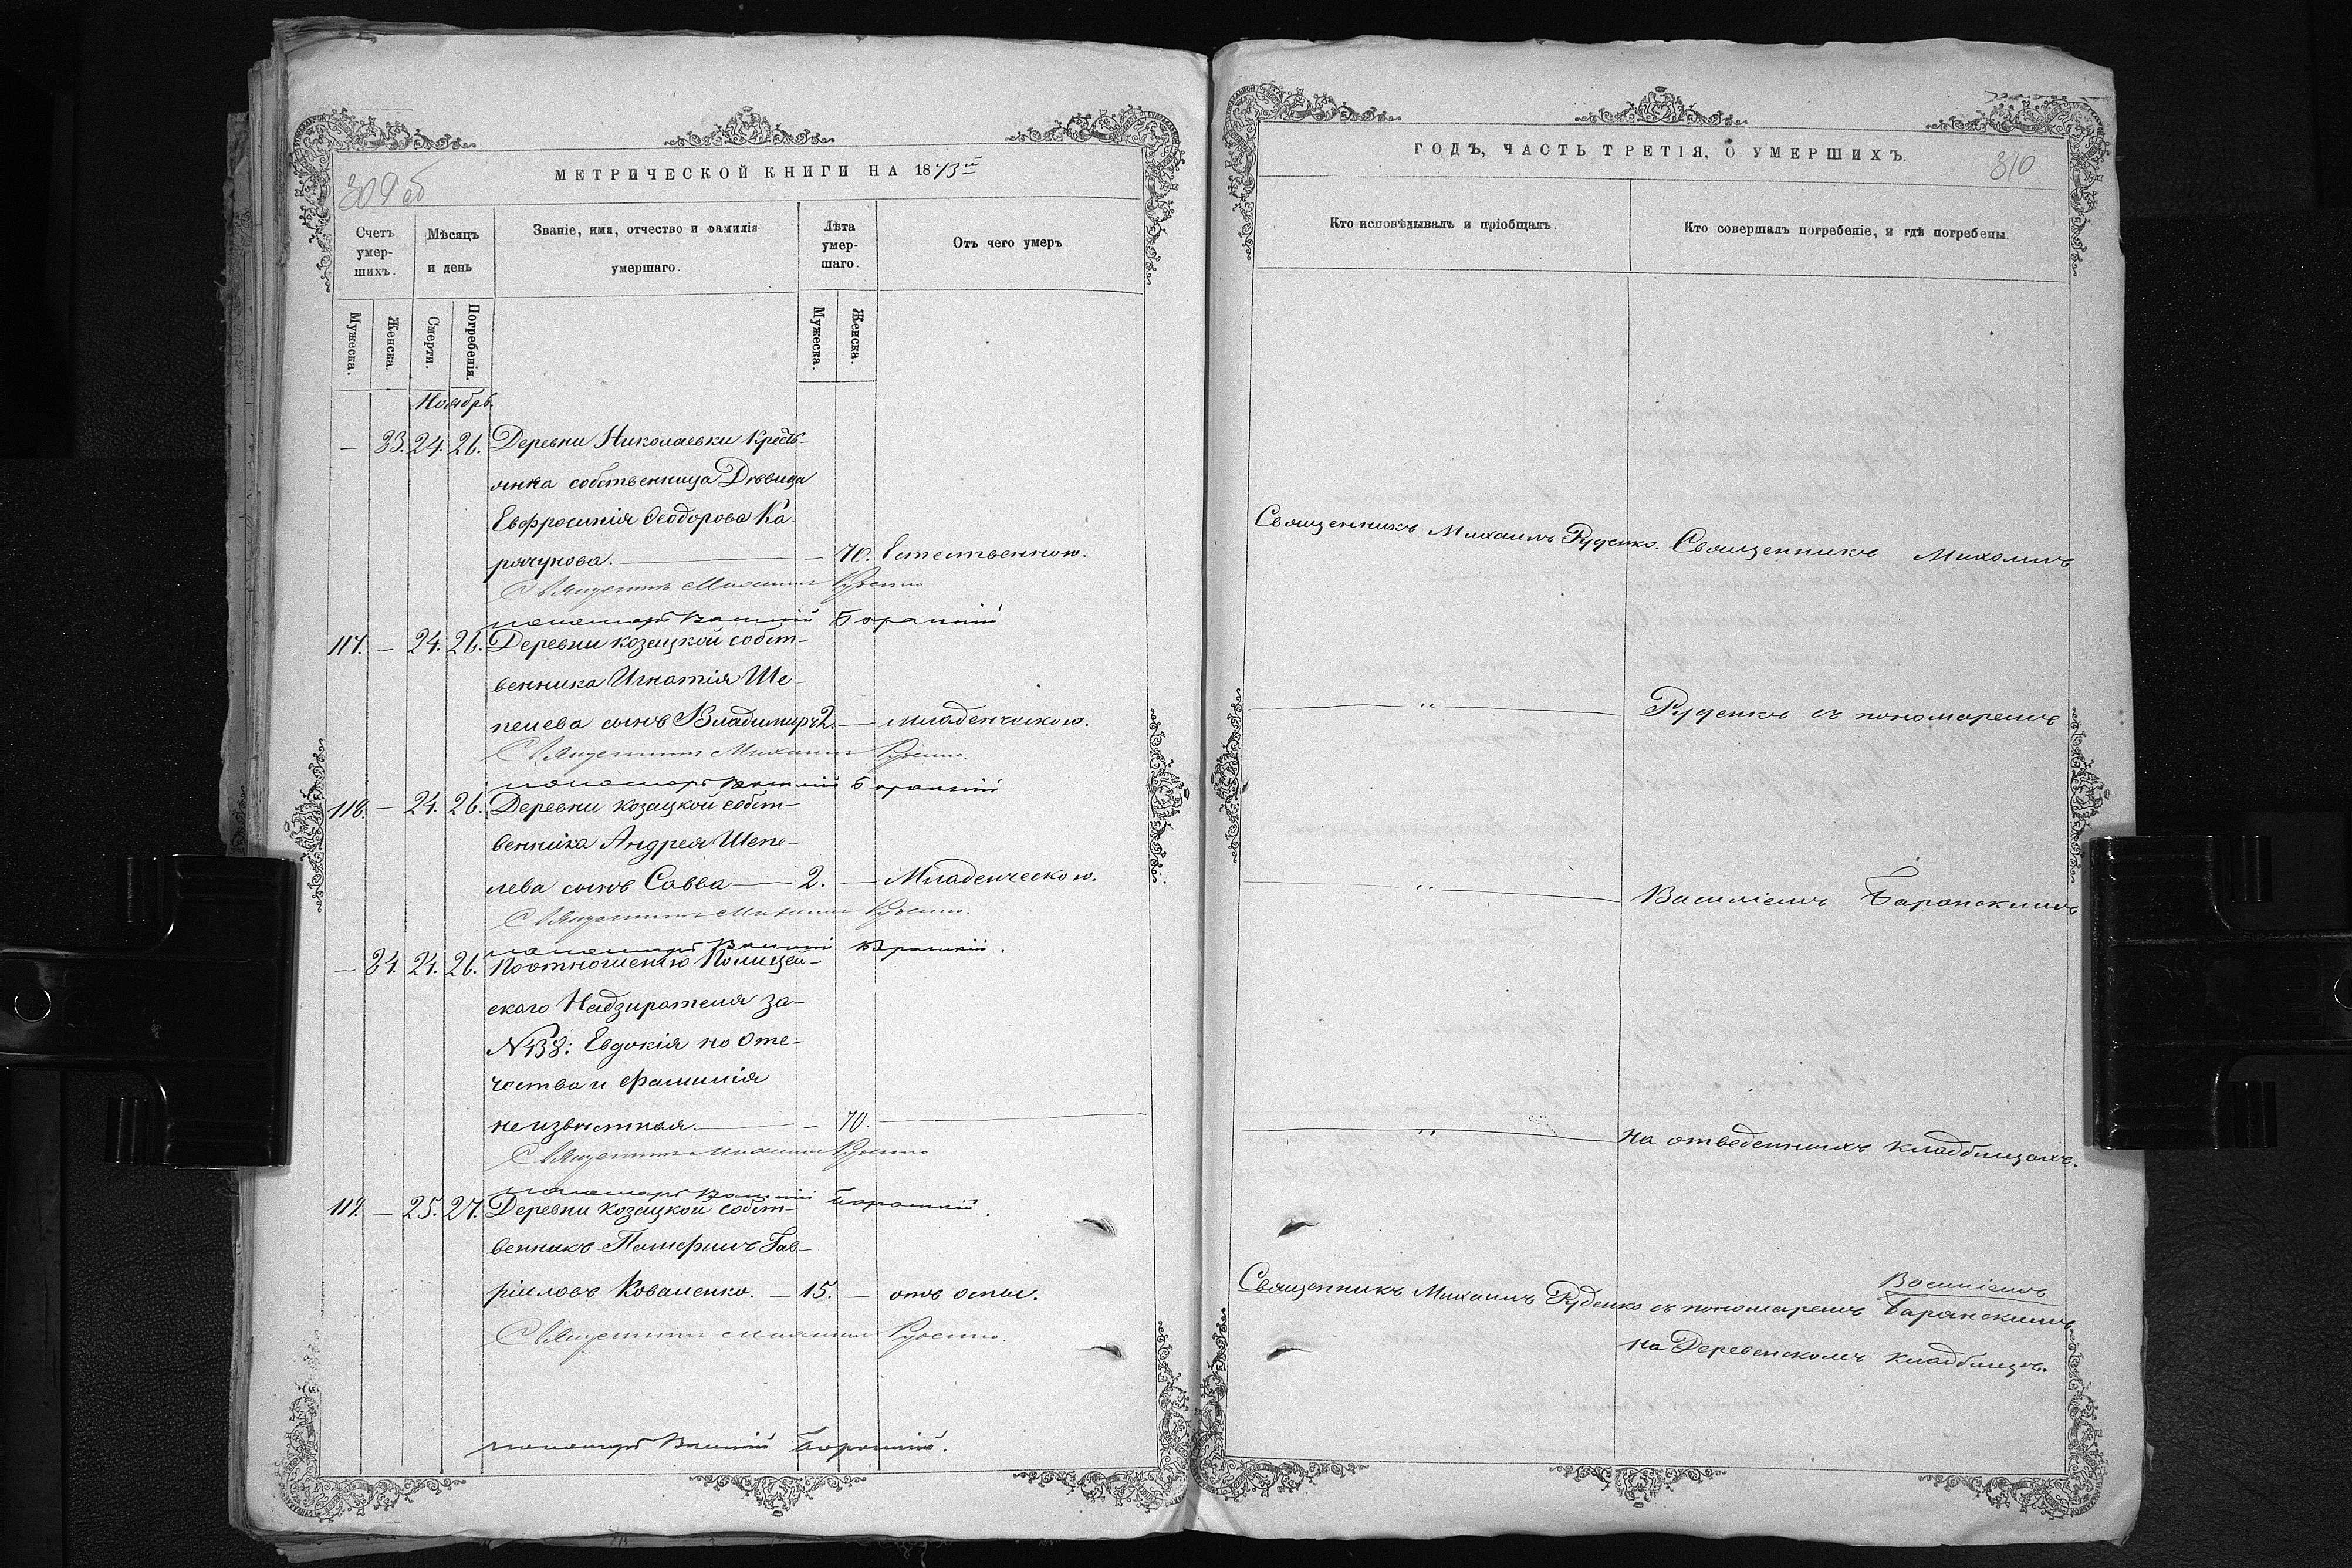 309 об
МЕТРИЧЕСКОЙ КНИГИ НА 1873й
Счетъ умер-шихъ.
Мѣсяцъ и день
Званіе, имя, отчество и фамилія умершаго.
Лѣта умер-шаго.
Отъ чего умеръ
Мужеска.
Женска.
Смерти.
Погребенія.
Мужеска.
Женска.
Ноябрь.
— 33. 24. 26. Деревни Николаевки Кресть-
янка собственница Дѣвица
Евфросинія Ѳеодорова Ка-
рачунова. — — 70. Естественною.
Священникъ Михаилъ Руденко
пономарь Василій Баранскій
117. — 24. 26. Деревни козацкой собст-
венника Игнатія Ше-
пелева сынъ Владимиръ 2. — младенческою.
Священникъ Михаилъ Руденко.
пономарь Василій Баранскій
118. — 24. 26. Деревни козацкой собст-
венника Андрея Шепе-
лева сынъ Савва — 2. — Младенческою.
Священникъ Михаилъ Руденко.
пономарь Василій Баранскій.
— 34. 24. 26. По отношенію Полицей-
скаго Надзирателя за-
№438: Евдокія по Оте-
чества и фамилія
неизвѣстная. — — 70. —
Священникъ Михаилъ Руденко
пономарь Василій Баранскій.
119. — 25. 27. Деревни козацкой собст-
венникъ Памфилъ Гав-
ріиловъ Коваленко. — 15. — отъ оспы.
Священникъ Михаилъ Руденко.
пономарь Василій Баранскій.
ГОДЪ, ЧАСТЬ ТРЕТІЯ, О УМЕРШИХЪ.
310
Кто исповѣдывалъ и пріобщалъ.
Кто совершалъ погребеніе, и гдѣ погребены.
Священникъ Михаилъ Руденко. Священникъ Михаилъ
— " — Руденко съ пономаремъ
— " — Василіемъ Баранскимъ
— " — на отведенныхъ кладбищахъ.
Василіемъ
Священникъ Михаилъ Руденко съ пономаремъ Баранскимъ
на Деревенскомъ кладбищѣ.